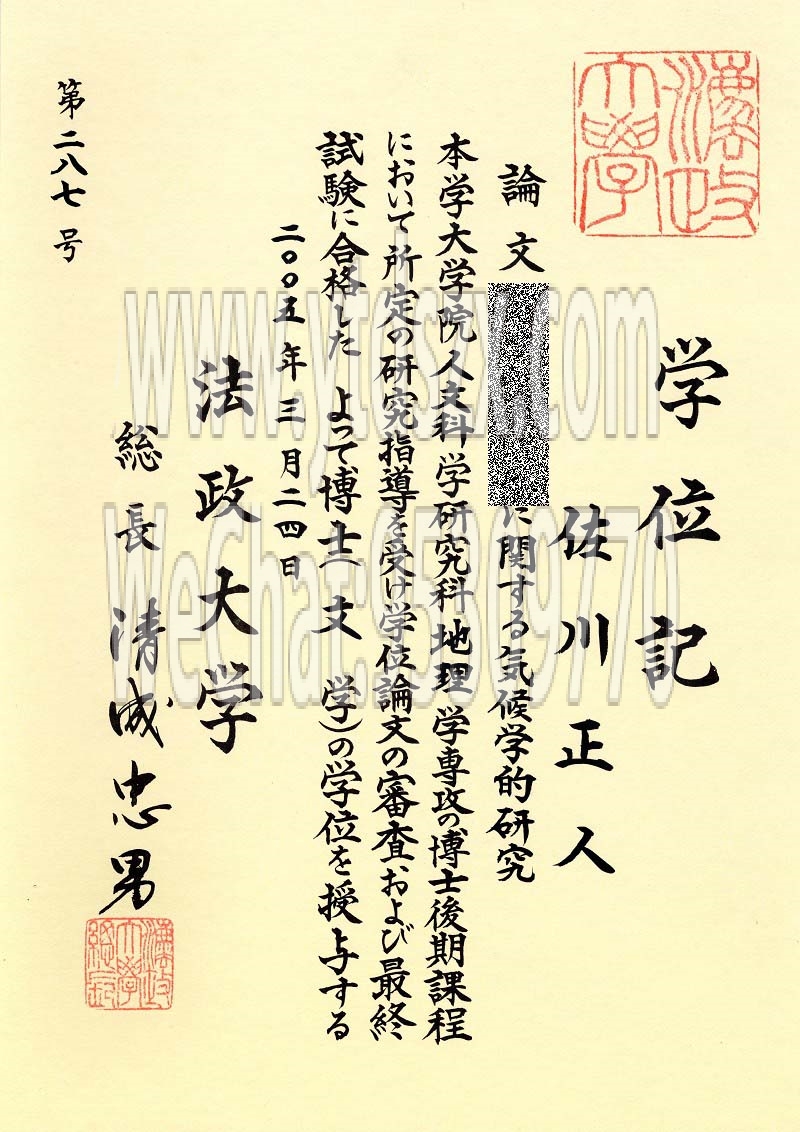 学位記
佐川正人
論文
に関する気候学的研究
本学大学院人文科学研究科地理学専攻の博士後期課程
において所定の研究指導を受け学位論文の審査および最終
試験に合格した よって博士(文学)の学位を授与する
二〇〇五年三月二四日
法政大学
総長 清成忠男
第二八七号
法政大学
法政大学総長
www.ytcszx.com
WeChat:95309770